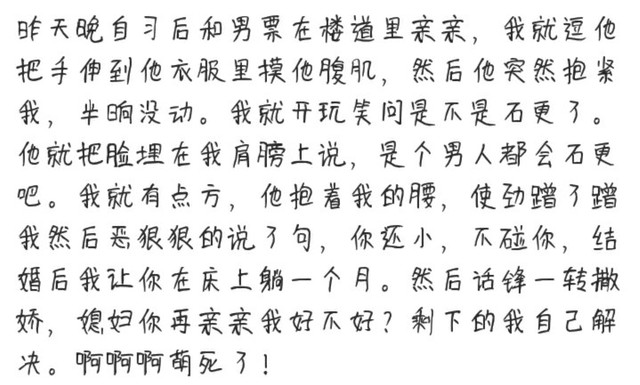 昨天晚自习后和男票在楼道里亲亲，我就逗他
把手伸到他衣服里摸他腹肌，然后他突然抱紧
我，半晌没动。我就开玩笑问是不是石更了。
他就把脸埋在我肩膀上说，是个男人都会石更
吧。我就有点方，他抱着我的腰，使劲蹭了蹭
我然后恶狠狠的说了句，你还小，不碰你，结
婚后我让你在床上躺一个月。然后话锋一转撒
娇，媳妇你再亲亲我好不好？剩下的我自己解
决。啊啊啊萌死了！